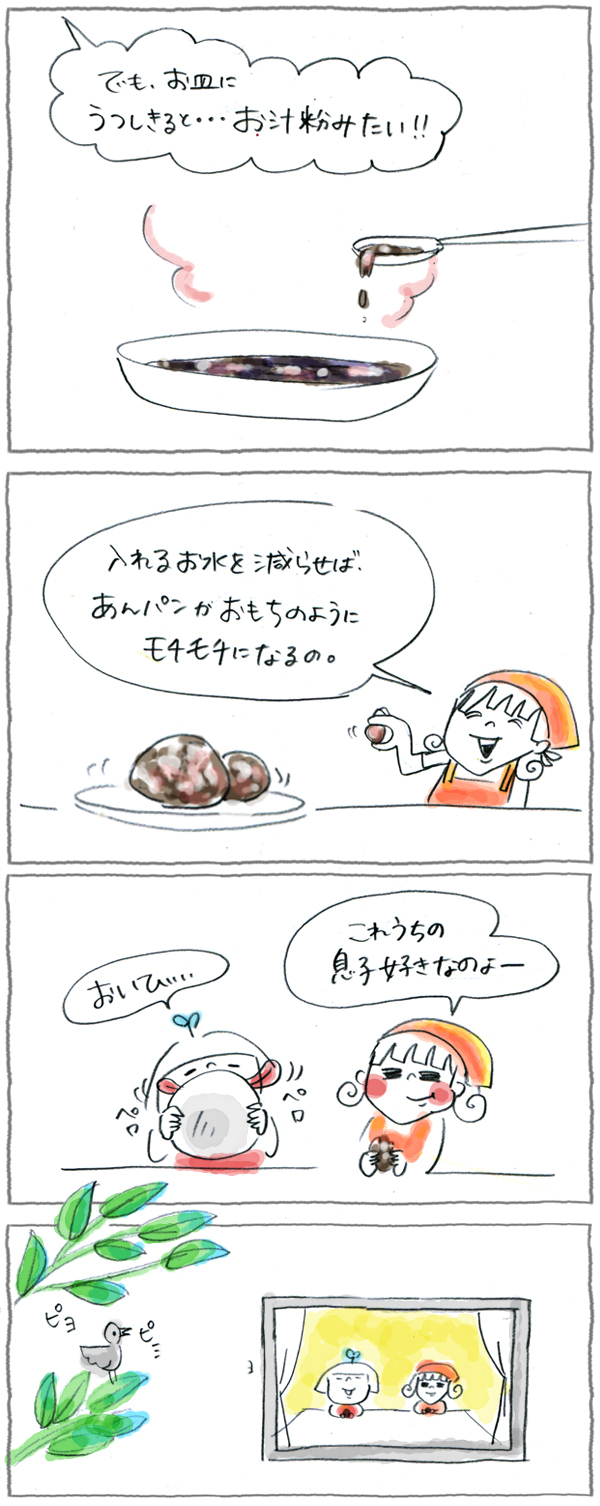 でも、お皿に
うつしきると・・・お汁粉みたい!!
入れるお水を減らせば、
あんパンがおもちのように
モチモチになるの。
これうちの
息子好きなのよー
おいひい…
ペロ
ペロ
ピヨ
ピミ
ヨ